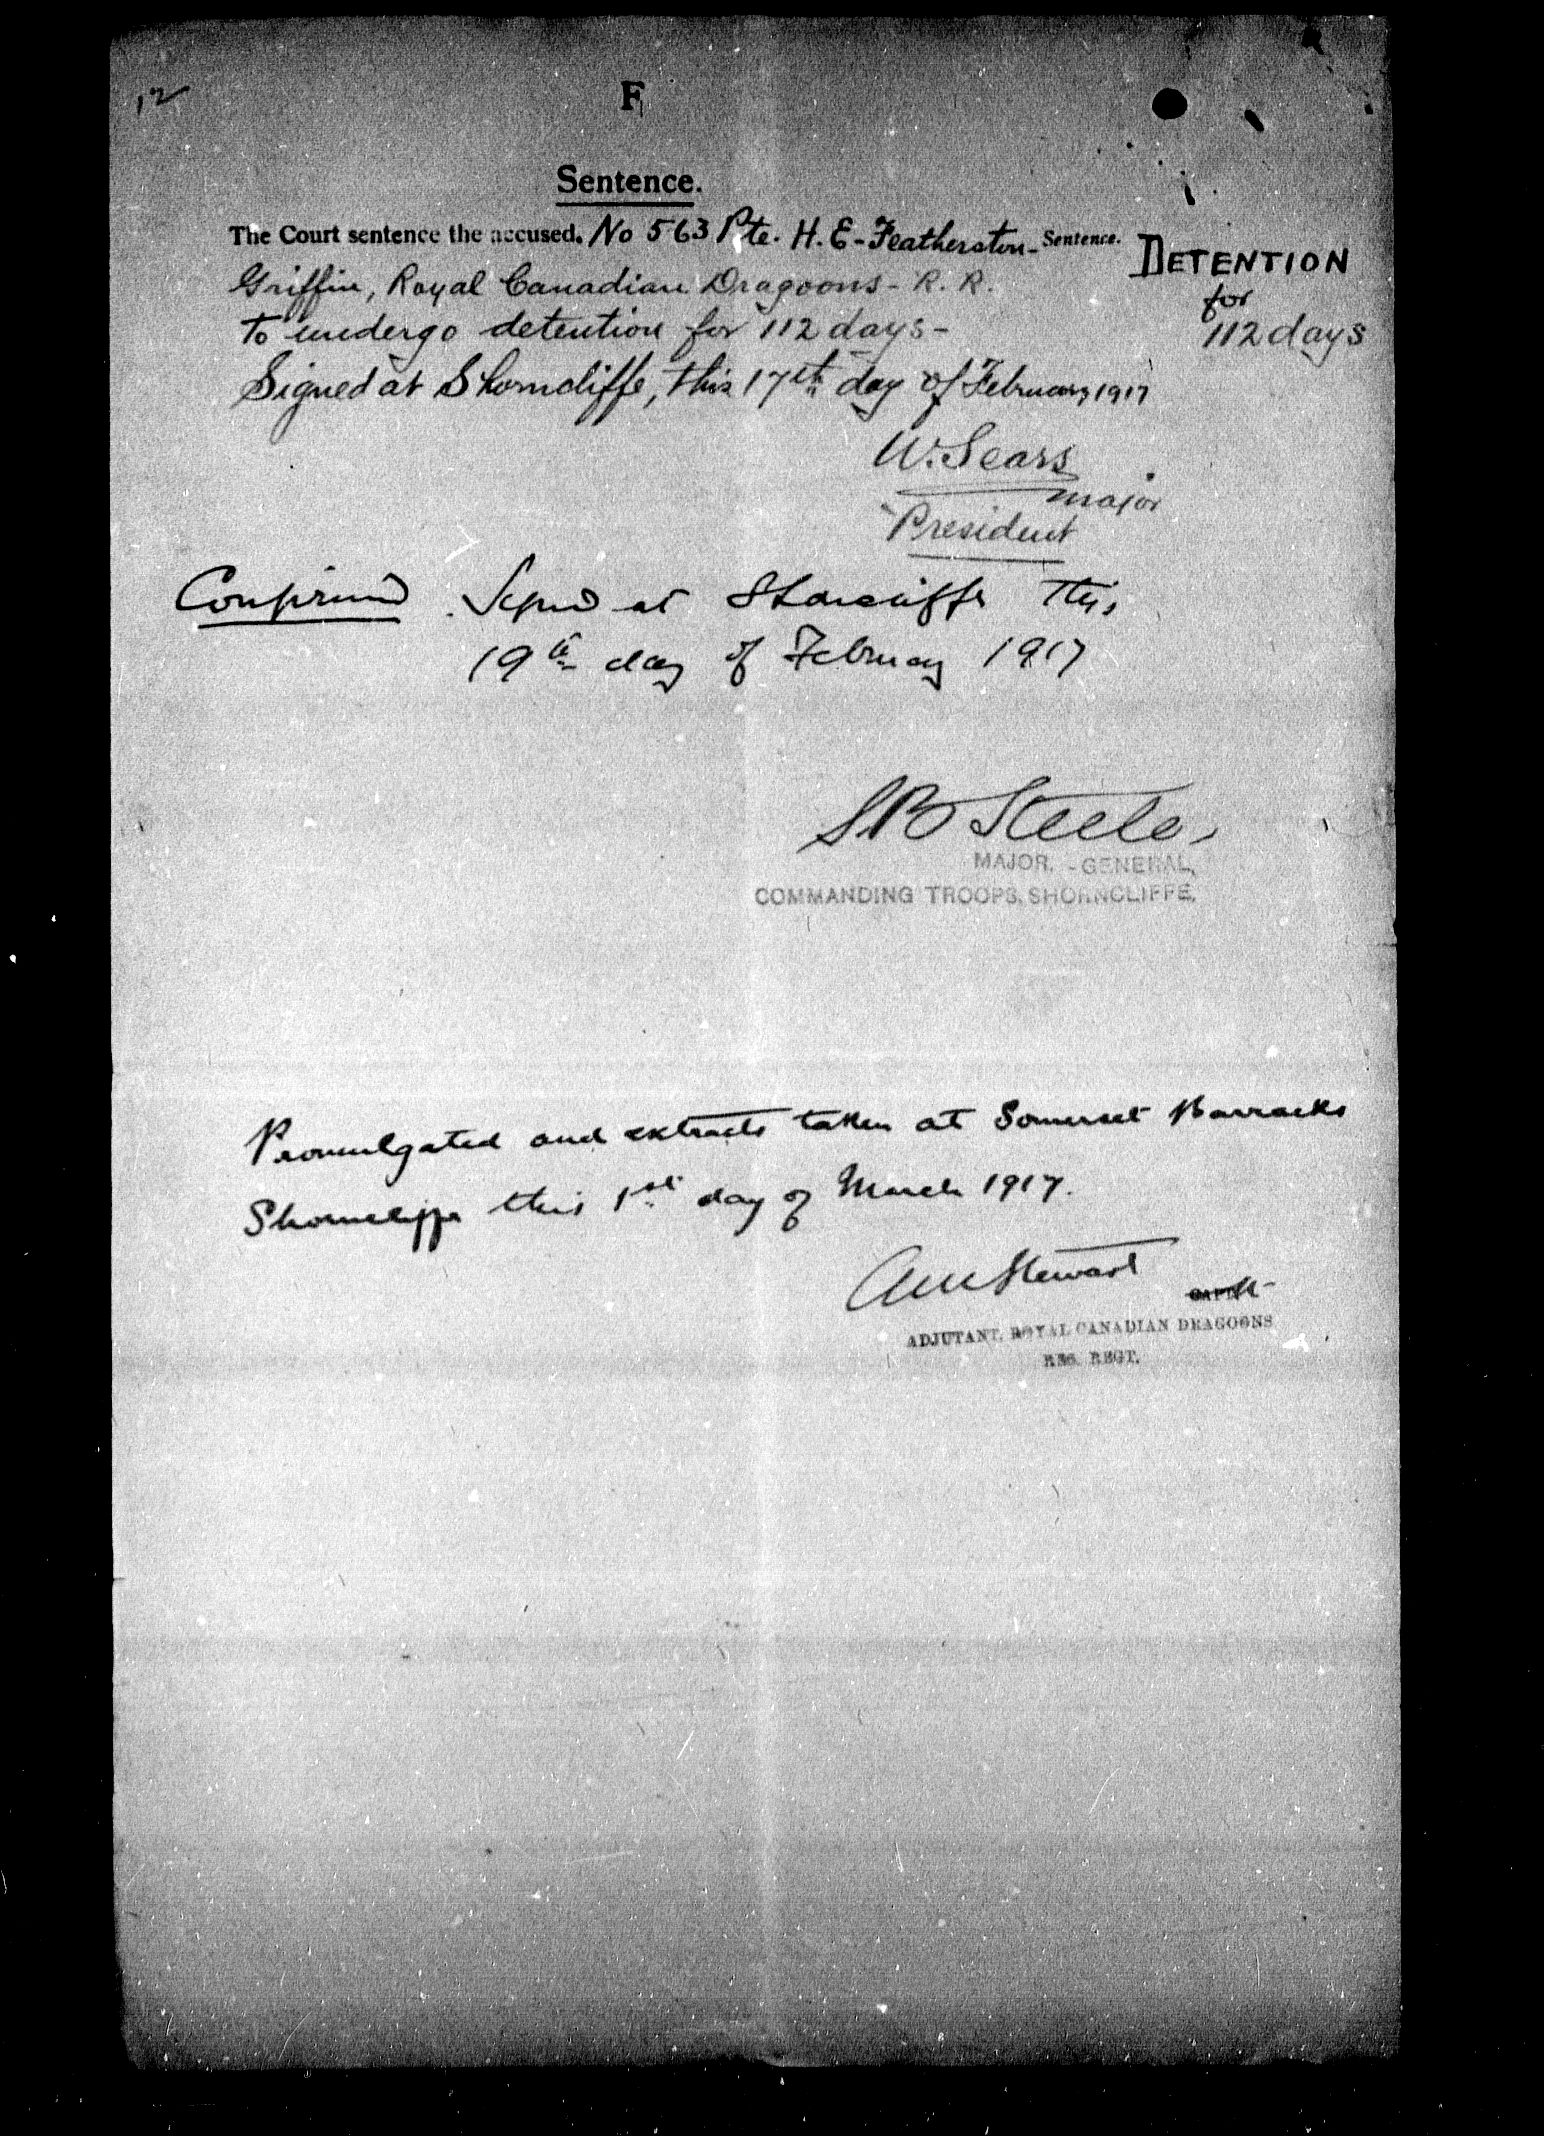 12
F
Sentence.
The Court sentence the accused, No 563 Pte. H. E. Featherston- Sentence.
DETENTION
for
112 days
Griffin, Royal Canadian Dragoons - R. R.
to undergo detention for 112 days -
Signed at Shorncliffe, this 17th day of February 1917
W. Sears
Major
President
Confirmed. Signed at Shorncliffe this
19th day of February 1917
S B Steele
MAJOR. - GENERAL,
COMMANDING TROOPS, SHORNCLIFFE.
Promulgated and extracts taken at Somerset Barracks
Shorncliffe this 1st day of March 1917.
Stewart
ADJUTANT, ROYAL CANADIAN DRAGOONS
RES. REGT.